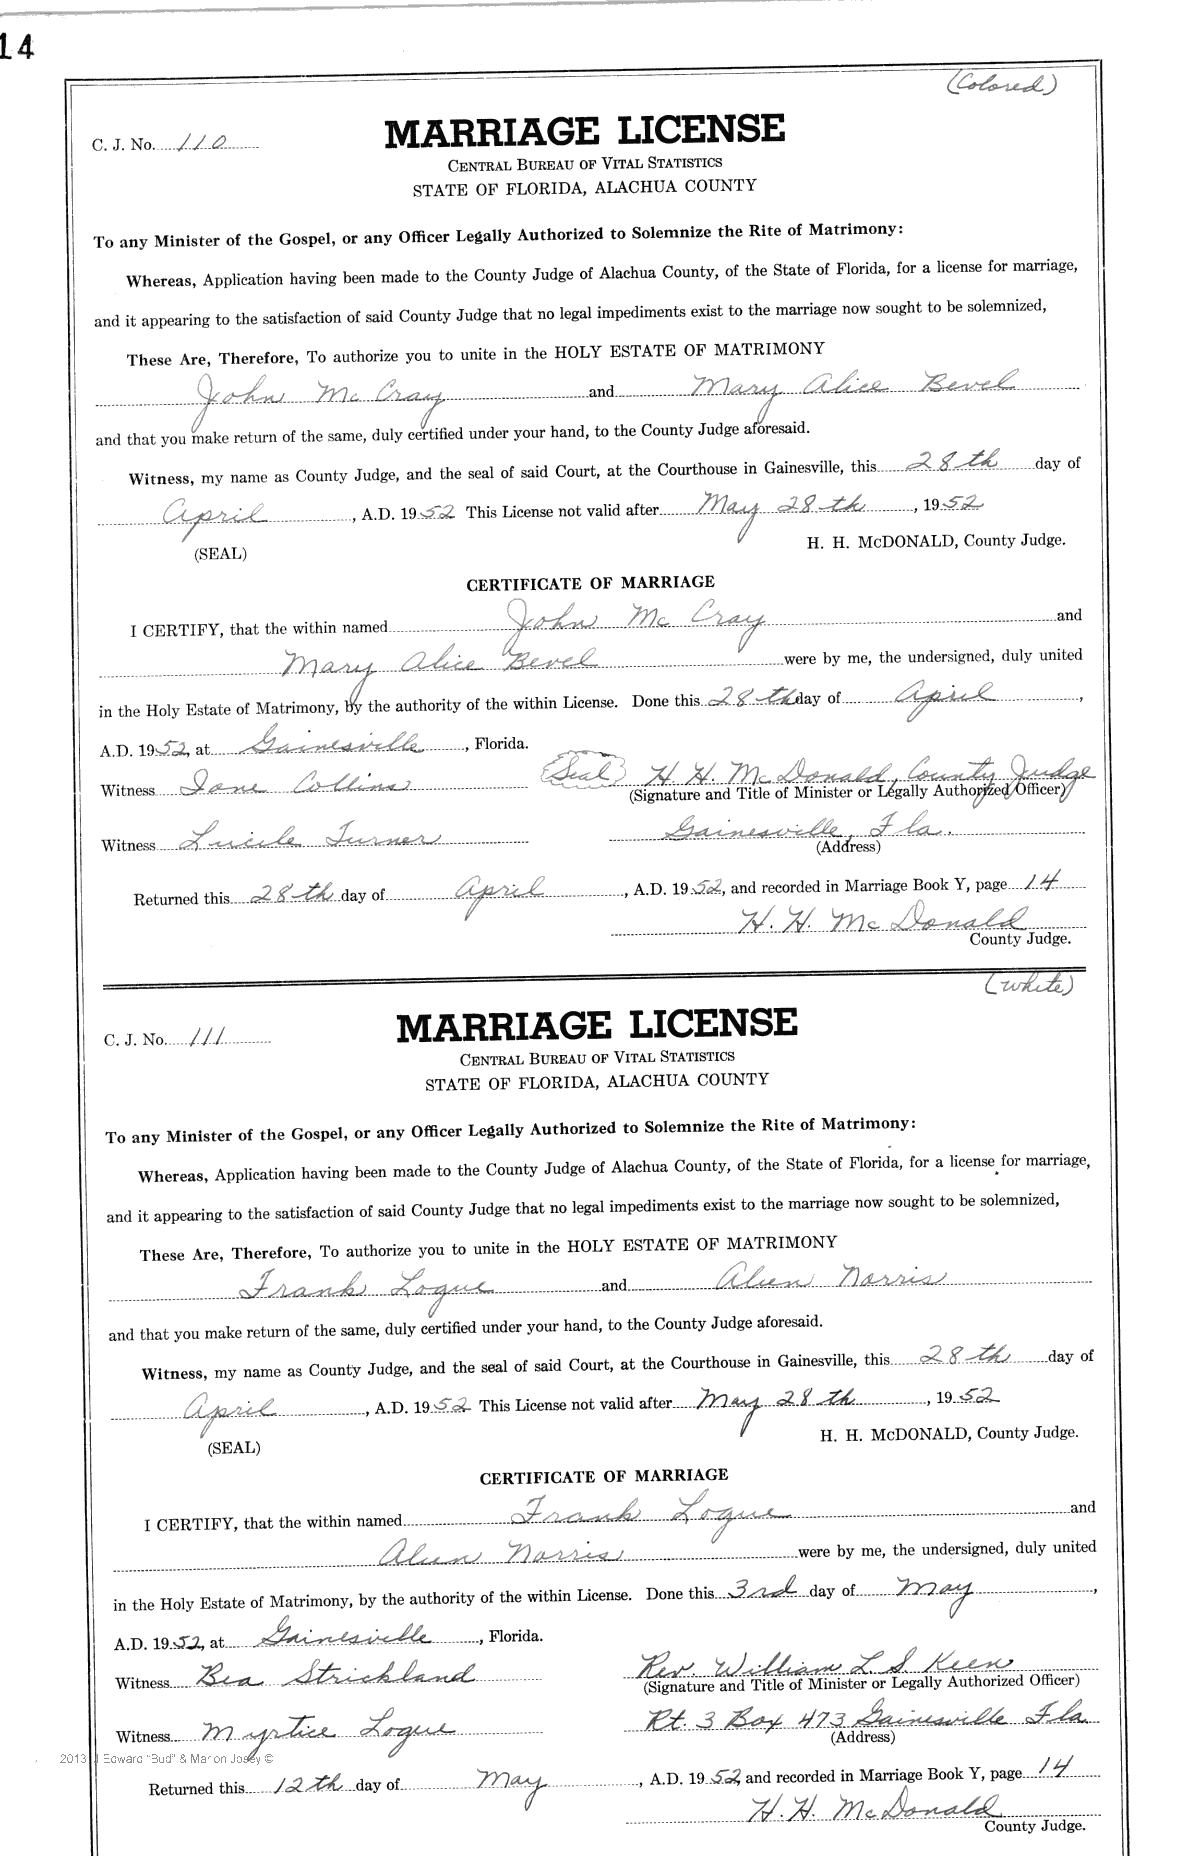 14
(Colored)
C. J. No. 110
MARRIAGE LICENSE
CENTRAL BUREAU OF VITAL STATISTICS
STATE OF FLORIDA, ALACHUA COUNTY
To any Minister of the Gospel, or any Officer Legally Authorized to Solemnize the Rite of Matrimony:
Whereas, Application having been made to the County Judge of Alachua County, of the State of Florida, for a license for marriage,
and it appearing to the satisfaction of said County Judge that no legal impediments exist to the marriage now sought to be solemnized,
These Are, Therefore, To authorize you to unite in the HOLY ESTATE OF MATRIMONY
John Mc Cray and Mary Alice Bevel
and that you make return of the same, duly certified under your hand, to the County Judge aforesaid.
Witness, my name as County Judge, and the seal of said Court, at the Courthouse in Gainesville, this 28th day of
April, A.D. 1952 This License not valid after May 28th, 1952
(SEAL) H. H. McDONALD, County Judge.
CERTIFICATE OF MARRIAGE
I CERTIFY, that the within named John Mc Cray and
Mary Alice Bevel were by me, the undersigned, duly united
in the Holy Estate of Matrimony, by the authority of the within License. Done this 28th day of April,
A.D. 1952, at Gainesville, Florida.
Witness Ione Collins (Seal) H. H. McDonald, County Judge
(Signature and Title of Minister or Legally Authorized Officer)
Witness Lucile Turner Gainesville, Fla.
(Address)
Returned this 28th day of April, A.D. 1952, and recorded in Marriage Book Y, page 14
H. H. McDonald
County Judge.
(White)
C. J. No. 111
MARRIAGE LICENSE
CENTRAL BUREAU OF VITAL STATISTICS
STATE OF FLORIDA, ALACHUA COUNTY
To any Minister of the Gospel, or any Officer Legally Authorized to Solemnize the Rite of Matrimony:
Whereas, Application having been made to the County Judge of Alachua County, of the State of Florida, for a license for marriage,
and it appearing to the satisfaction of said County Judge that no legal impediments exist to the marriage now sought to be solemnized,
These Are, Therefore, To authorize you to unite in the HOLY ESTATE OF MATRIMONY
Frank Logue and Norris
and that you make return of the same, duly certified under your hand, to the County Judge aforesaid.
Witness, my name as County Judge, and the seal of said Court, at the Courthouse in Gainesville, this 28th day of
April, A.D. 1952 This License not valid after May 28th, 1952
(SEAL) H. H. McDONALD, County Judge.
CERTIFICATE OF MARRIAGE
I CERTIFY, that the within named Frank Logue and
Norris were by me, the undersigned, duly united
in the Holy Estate of Matrimony, by the authority of the within License. Done this 3rd day of May,
A.D. 1952, at Gainesville, Florida.
Witness Bea Strickland Rev. William L. S Keen
(Signature and Title of Minister or Legally Authorized Officer)
Witness Myrtice Logue Rt. 3 Box 473 Gainesville Fla.
(Address)
2013 J Edward "Bud" & Marion Josey ©
Returned this 12th day of May, A.D. 1952, and recorded in Marriage Book Y, page 14
H. H. McDonald
County Judge.